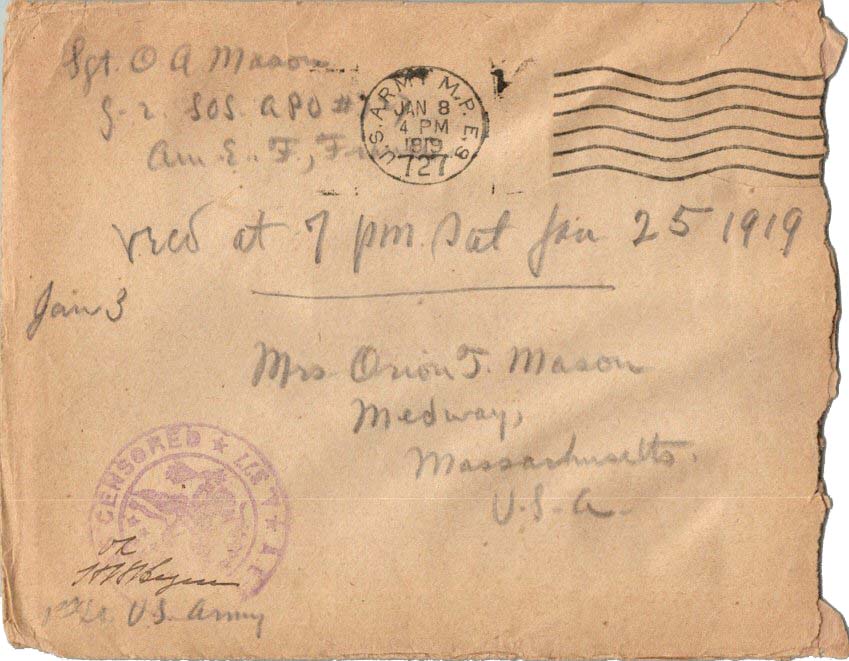 Sgt. O A Mason
G-2. SOS. APO #
Am. E. F.,
U.S. ARMY M.P.E.S
JAN 8
4 PM
1919
727
recd at 7 pm. Sat Jan 25 1919
Jan 3
Mrs Orion T. Mason
Medway,
Massachusetts.
U.S.A.
CENSORED ★
OK
1st Lt. U.S. Army